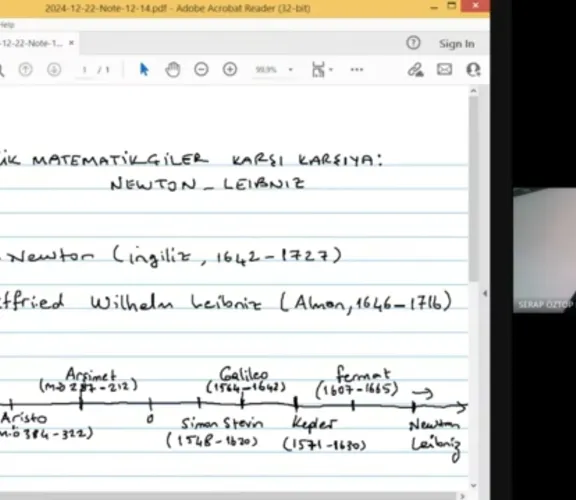 2024-12-22-Note-12-14.pdf - Adobe Acrobat Reader (32-bit)
Help
-12-22-Note-1... ×
Sign In
1 / 1
99,9%
ÜK MATEMATİKÇİLER KARŞI KARŞIYA:
NEWTON - LEIBNIZ
Newton (ingiliz, 1642-1727)
tfried Wilhelm Leibniz (Alman, 1646-1716)
Arşimet
(m.ö 287-212)
Galileo
(1564-1642)
fermat
(1607-1665)
Aristo
m.ö 384-322)
0
Simon Stevin
(1548-1620)
Kepler
(1571-1630)
Newton
Leibniz
SERAP ÖZTOP